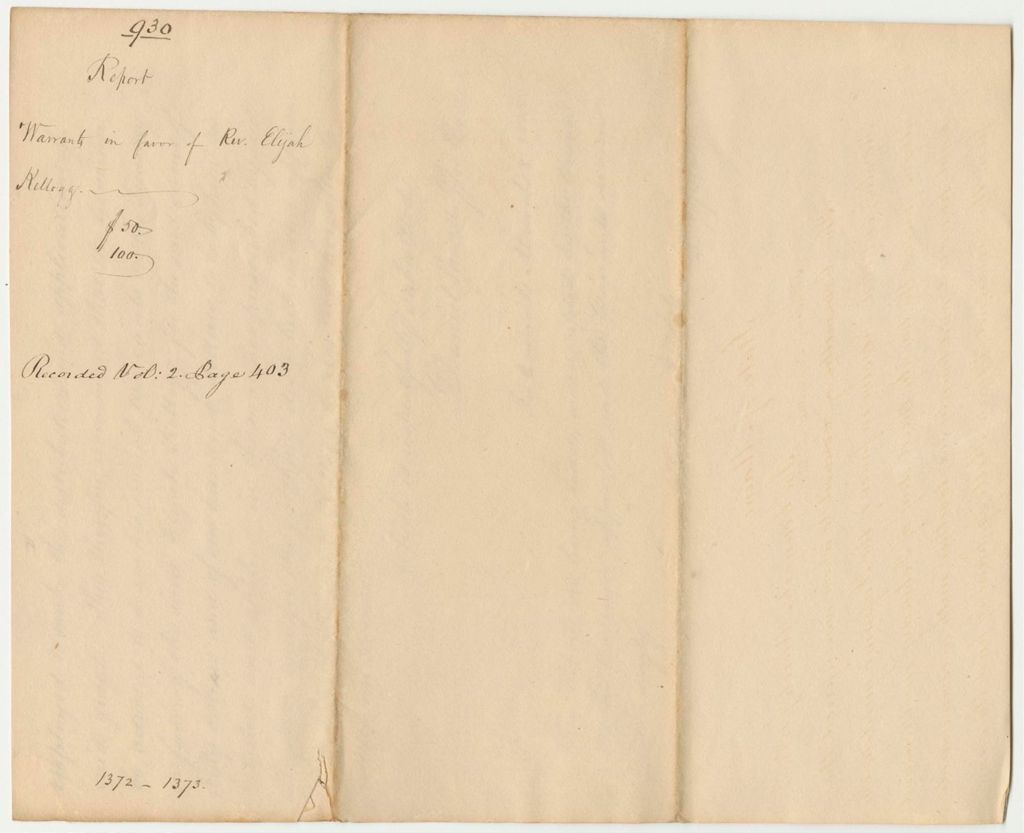 930
Report
Warrants in favor of Rev. Elijah
Kellogg.
$50.
100.
Recorded Vol: 2. Page 403
1372 - 1373.